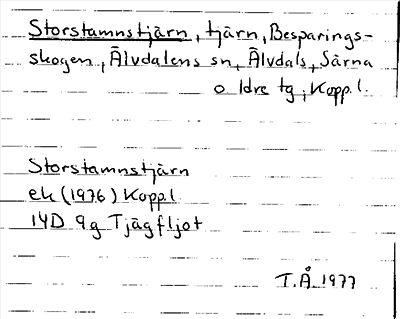 Storstamnstjärn, tjärn, Besparings-
skogen, Älvdalens sn, Älvdals, Särna
o Idre tg, Kopp.l.
Storstamnstjärn
ek (1976) Kopp.l
14D 9g Tjägfljot
T.Å 1977